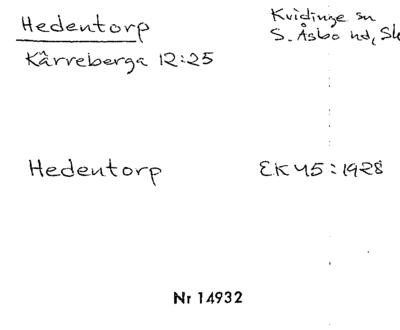 Hedentorp
Kvidinge sn
Kärreberga 12:25
S. Åsbo hd, Sk
Hedentorp
EK 45:1928
Nr 14932